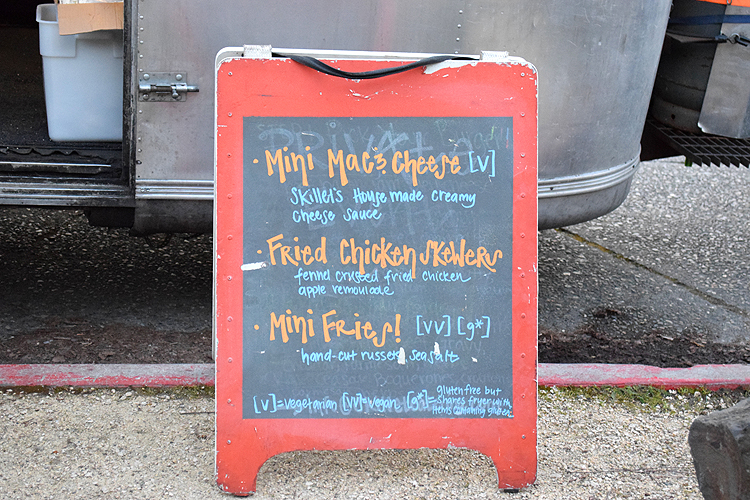 · Mini Mac & Cheese [v]
Skillet's House made creamy
cheese sauce
· Fried Chicken Skewers
fennel crusted fried chicken
apple remoulade
· Mini Fries! [vv] [g*]
hand-cut russets, sea salt
[v]=vegetarian [vv]=vegan [g*]= gluten free but
shares fryer with
items containing gluten